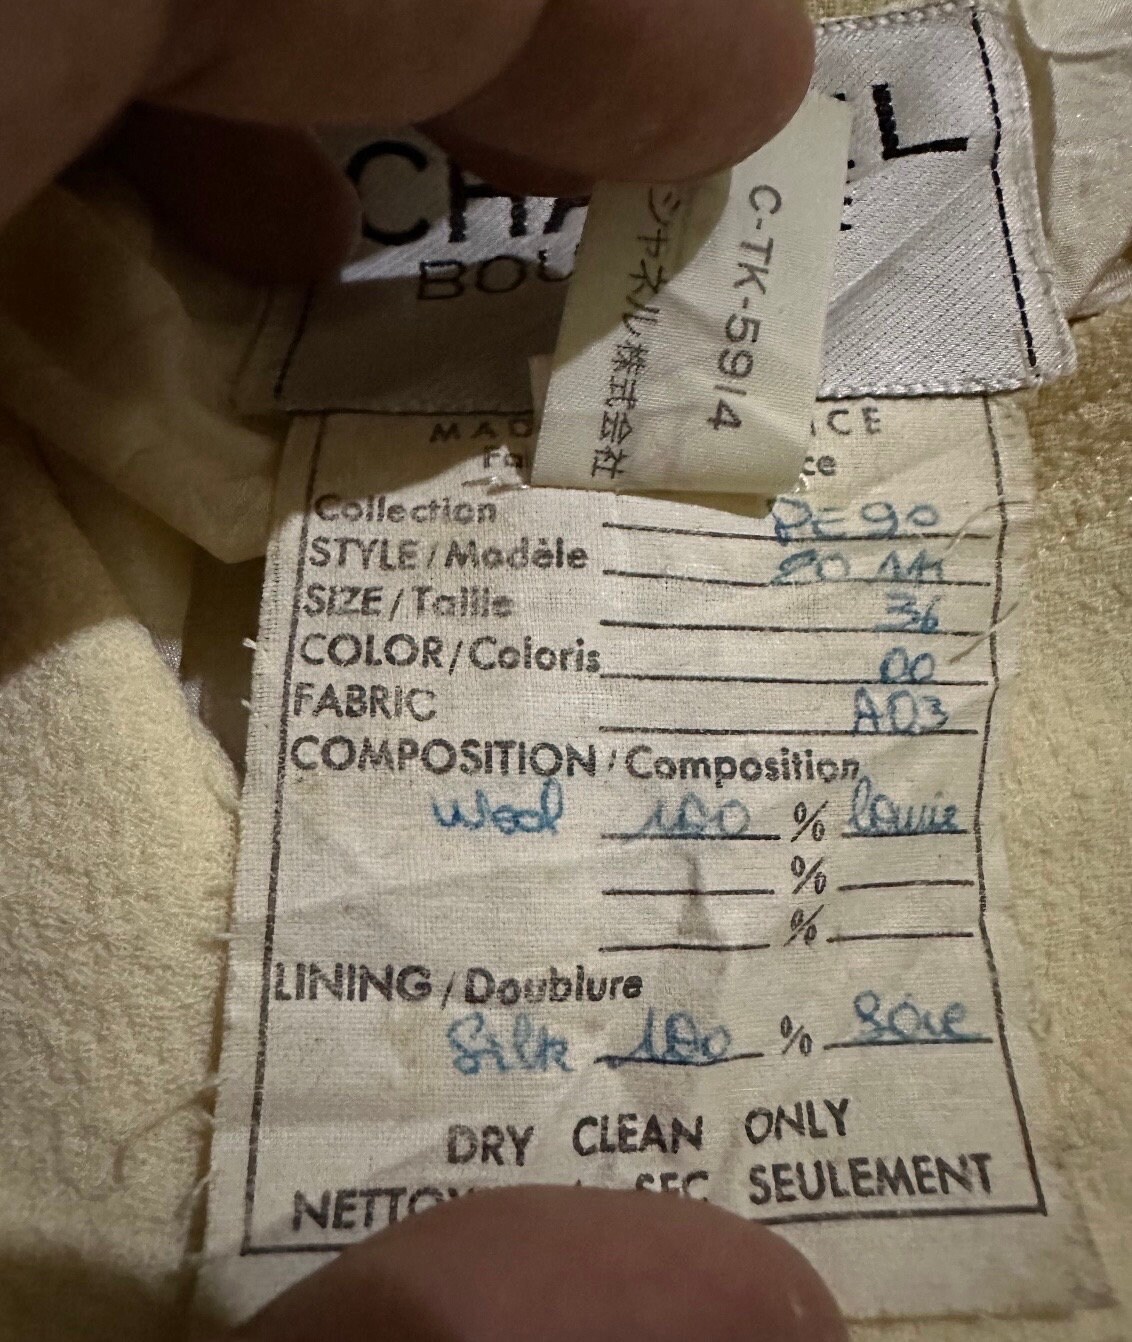 CHA EL
BOU
C-TK-5914
シャネル株式会社
MAD ICE
Fa ce
Collection PE 90
STYLE/Modèle
SIZE/Taille 36
COLOR/Coloris 00
FABRIC A03
COMPOSITION/Composition
Wool 100 % laine
%
%
LINING/Doublure
Silk 100 % Soie
DRY CLEAN ONLY
NETTOY SEC SEULEMENT